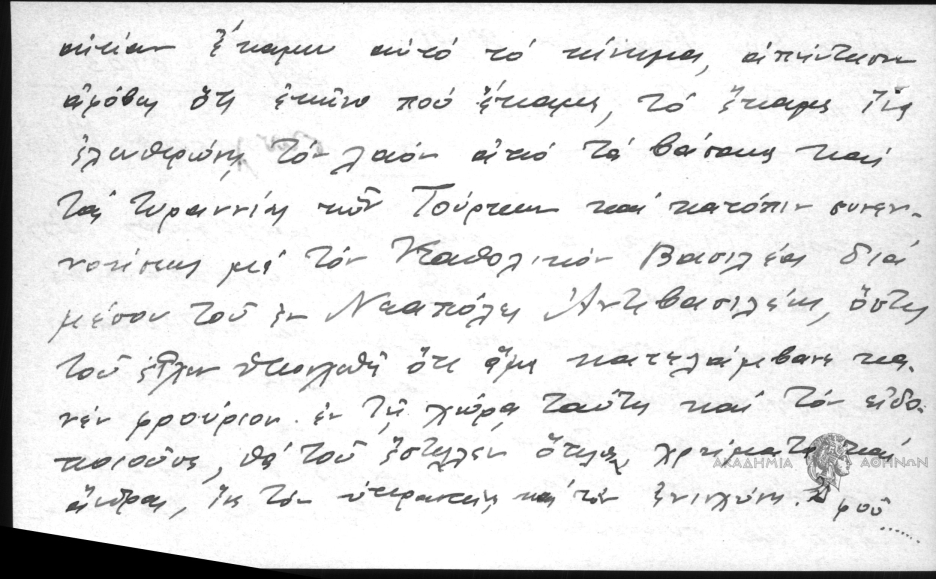 αἰτίαν ἔκαμεν αὐτό τό κίνημα, ἀπήντησεν
ἀμέσως ὅτι ἐκεῖνο πού ἔκαμε, τό ἔκαμε διά
ἐλευθερώση τόν λαόν ἀπό τά βάσανα καί
τάς τυραννίας τῶν Τούρκων καί κατόπιν συνεν-
νοήσεως μέ τόν Καθολικόν Βασιλέα διά
μέσου τοῦ ἐν Νεαπόλει Ἀντιβασιλέως, ὅστις
τοῦ εἶχεν ὑποσχεθῆ ὅτι ἅμα κατελάμβανε κα-
νέν φρούριον ἐν τῇ χώρᾳ ταύτῃ καί τόν εἰδο-
ποιοῦσε, θά τοῦ ἔστελλεν ὅπλα, χρήματα καί
ἄνδρας, διά τόν καί τόν
ΑΚΑΔΗΜΙΑ ΑΘΗΝΩΝ